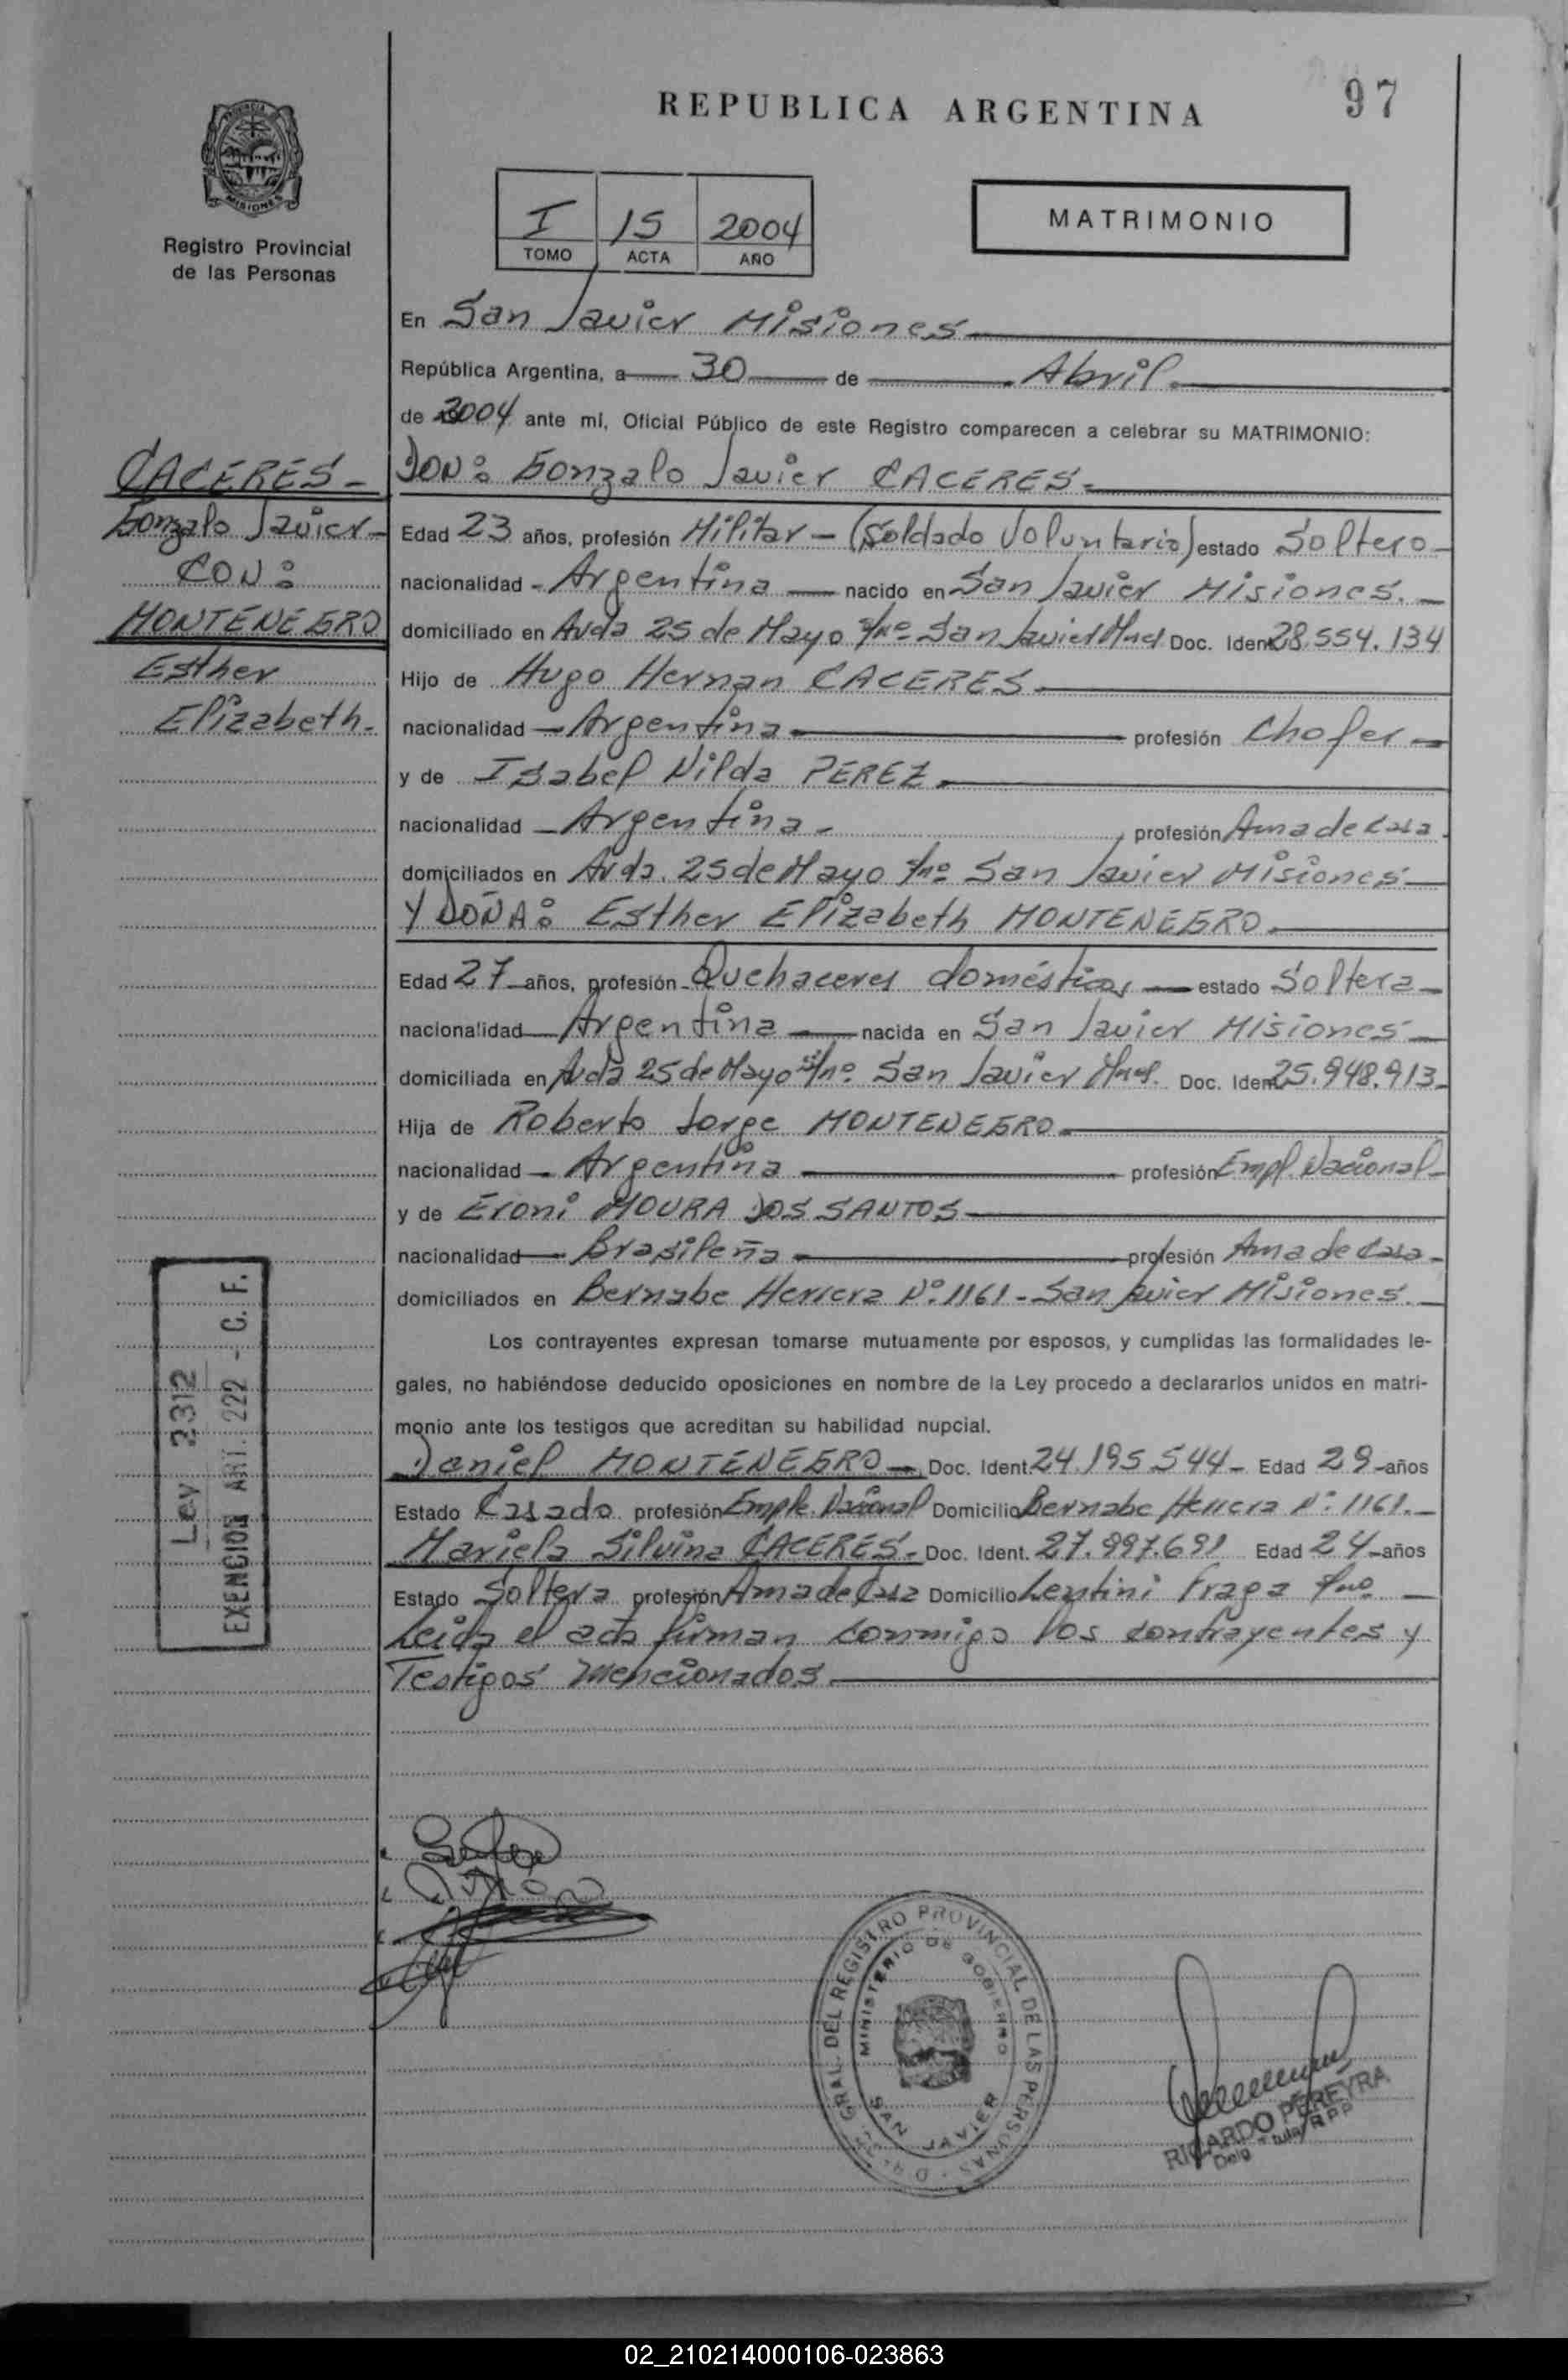 REPUBLICA ARGENTINA
97
Registro Provincial
de las Personas
I 15 2004
TOMO ACTA AÑO
MATRIMONIO
En San Javier Misiones
República Argentina, a 30 de Abril
de 2004 ante mí, Oficial Público de este Registro comparecen a celebrar su MATRIMONIO:
CACERES
Gonzalo Javier
CON:
MONTENEGRO
Esther
Elizabeth
DON: Gonzalo Javier CACERES
Edad 23 años, profesión Militar - (Soldado Voluntario) estado Soltero
nacionalidad Argentina nacido en San Javier Misiones.
domiciliado en Avda 25 de Mayo s/nº San Javier Mnes Doc. Ident 28.554.134
Hijo de Hugo Hernan CACERES
nacionalidad Argentina profesión Chofer
y de Isabel Nilda PEREZ
nacionalidad Argentina profesión Ama de Casa
domiciliados en Avda. 25 de Mayo s/nº San Javier Misiones
Y DOÑA: Esther Elizabeth MONTENEGRO
Edad 27 años, profesión Quehaceres domésticos estado Soltera
nacionalidad Argentina nacida en San Javier Misiones
domiciliada en Avda 25 de Mayo s/nº San Javier Mnes. Doc. Ident 25.948.913
Hija de Roberto Jorge MONTENEGRO
nacionalidad Argentina profesión Empl. Nacional
y de Eroni MOURA DOS SANTOS
nacionalidad Brasileña profesión Ama de Casa
domiciliados en Bernabe Herrera Nº 1161 - San Javier Misiones
Los contrayentes expresan tomarse mutuamente por esposos, y cumplidas las formalidades le-
gales, no habiéndose deducido oposiciones en nombre de la Ley procedo a declararlos unidos en matri-
monio ante los testigos que acreditan su habilidad nupcial.
Daniel MONTENEGRO Doc. Ident. 24.195.544 Edad 29 años
Estado Casado profesión Emple. Nacional Domicilio Bernabe Herrera Nº 1161.
Mariela Silvina CACERES Doc. Ident. 27.997.691 Edad 24 años
Estado Soltera profesión Ama de Casa Domicilio Lentini Fraga s/nº
Leida el acta firman conmigo los contrayentes y
Testigos mencionados
Ley 2312
EXENCION ART. 222 - C. F.
GRAL. DEL REGISTRO PROVINCIAL DE LAS PERSONAS
MINISTERIO DE GOBIERNO
SAN JAVIER
RICARDO PEREYRA
02_210214000106-023863